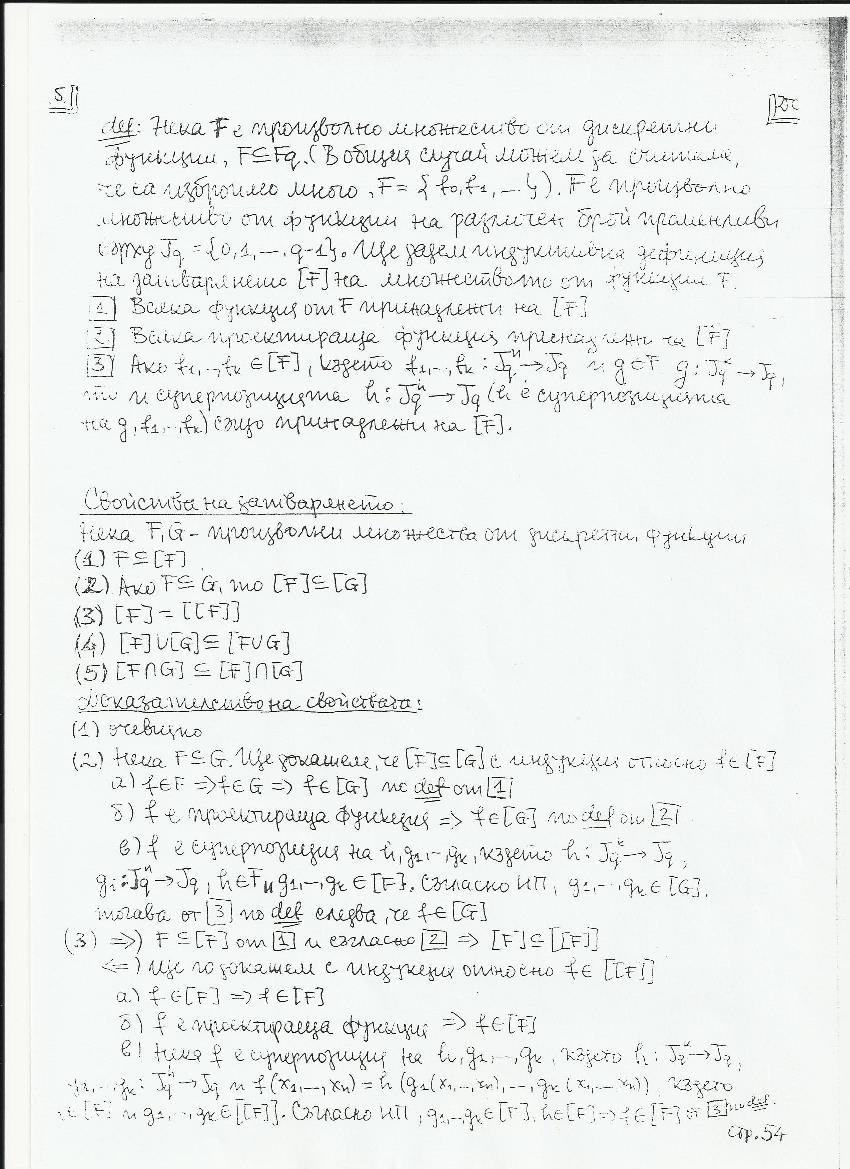 5.||
def: Нека F е произволно множество от дискретни
функции, F⊆Fq. (В общия случай можем да считаме,
че са изброимо много, F = {f0, f1, ...}). F е произволно
множество от функции на различен брой променливи
върху Jq = {0,1,...,q-1}. Ще дадем индуктивна дефиниция
на затварянето [F] на множеството от функции F.
[1] Всяка функция от F принадлежи на [F]
[2] Всяка проектираща функция принадлежи на [F]
[3] Ако f1,..,fk ∈ [F], където f1,..,fk : Jq^n → Jq и g∈F g: Jq^k → Jq,
то и суперпозицията h: Jq^n → Jq (h е суперпозицията
на g, f1,..,fk) също принадлежи на [F].
Свойства на затварянето:
Нека F, G - произволни множества от дискретни функции
(1) F⊆[F]
(2) Ако F⊆G, то [F]⊆[G]
(3) [F] = [[F]]
(4) [F]∪[G]⊆[F∪G]
(5) [F∩G] ⊆ [F]∩[G]
Доказателство на свойствата:
(1) очевидно
(2) Нека F⊆G. Ще докажем, че [F]⊆[G] с индукция относно f∈[F]
а) f∈F => f∈G => f∈[G] по def от [1]
б) f е проектираща функция => f∈[G] по def от [2]
в) f е суперпозиция на h, g1,..,gk, където h: Jq^k → Jq,
gi: Jq^n → Jq, h∈F и g1,..,gk ∈ [F]. Съгласно ИП, g1,..,gk∈[G],
тогава от [3] по def следва, че f∈[G]
(3) =>) F⊆[F] от [1] и съгласно [2] => [F]⊆[[F]]
<=) Ще го докажем с индукция относно f∈ [[F]]
а) f∈[F] => f∈[F]
б) f е проектираща функция => f∈[F]
в) Нека f е суперпозиция на h, g1,..,gk, където h: Jq^k→Jq,
g1,..,gk: Jq^n→Jq и f(x1,..,xn) = h(g1(x1,..,xn),..,gk(x1,..,xn)), където
h∈[F] и g1,..,gk∈[[F]]. Съгласно ИП, g1,..,gk∈[F], h∈[F]=>f∈[F] от [3] по def.
стр. 54